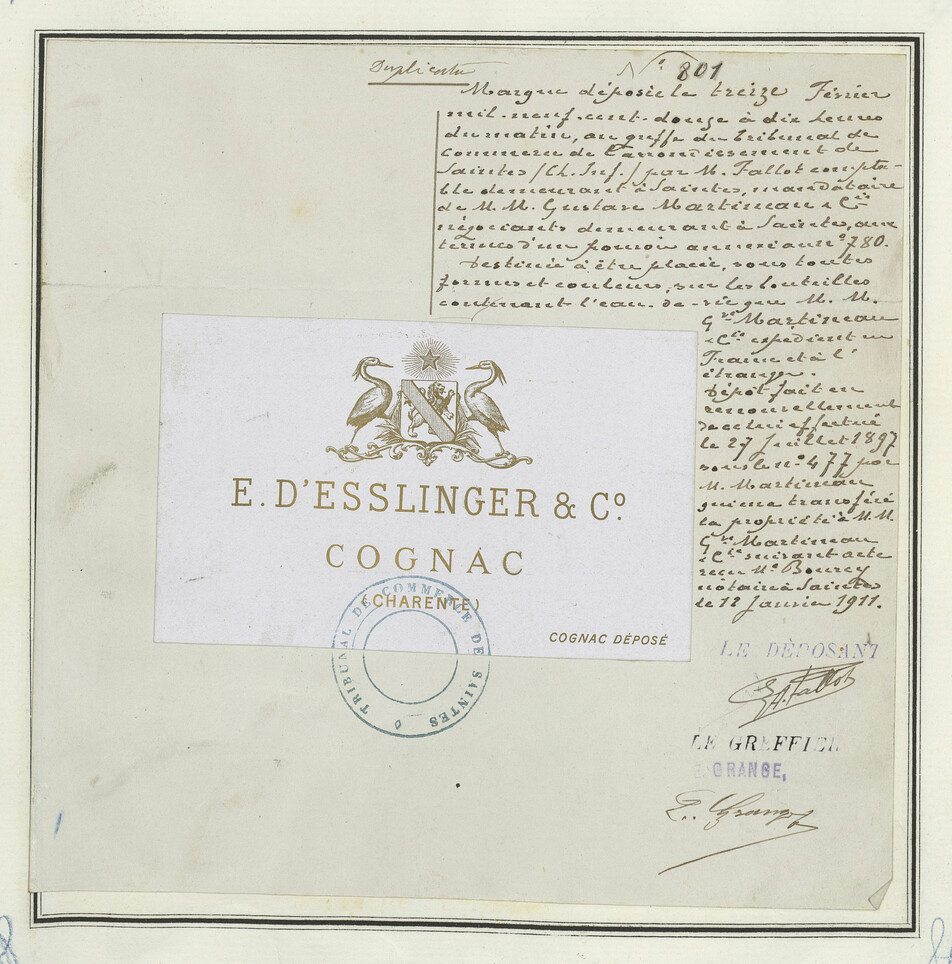 Duplicata
N° 801
Marque déposée le treize Février
mil-neuf-cent-douze à dix heures
du matin, au greffe du Tribunal de
Commerce de l'arrondissement de
Saintes (Ch. Inf.) par M. Fallot compta-
ble demeurant à Saintes, mandataire
de M. M. Gustave Martineau & Cie
négociants demeurant à Saintes, aux
termes d'un pouvoir annexé au n° 780.
Destinée à être placée, sous toutes
formes et couleurs, sur les bouteilles
contenant l'eau-de-vie que M. M.
Gve Martineau
& Cie expédient en
France et à l'
étranger.
Dépôt fait en
renouvellement
de celui effectué
le 27 Juillet 1897
sous le n° 477 par
M. Martineau
qui en a transféré
la propriété à M. M.
Gve Martineau
& Cie suivant acte
reçu Me Bourcy
notaire à Saintes
le 12 Janvier 1911.
E. D'ESSLINGER & Co.
COGNAC
(CHARENTE)
COGNAC DÉPOSÉ
TRIBUNAL DE COMMERCE DE SAINTES
LE DÉPOSANT
Fallot
LE GREFFIER
GRANGE,
E. Grange